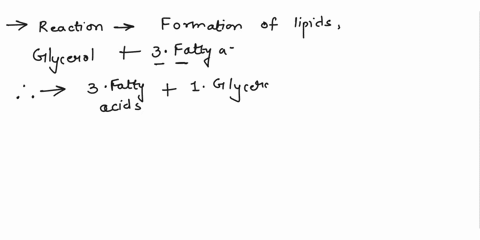 → Reaction → Formation of lipids,
Glycerol + 3. Fatty a-
∴ → 3. Fatty acids + 1. Glycero